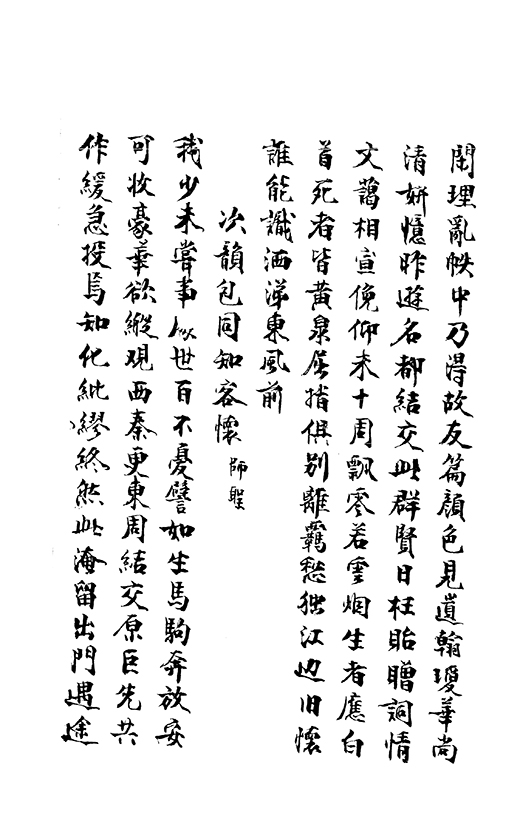 閑理亂帙中乃得故友篇顏色見遺翰瓊華尚
清妍憶昨遊名都結交此群賢日枉貽贈詞情
文藹相宣俛仰未十周飄零若雲烟生者應白
首死者皆黃泉屈指俱別離羈愁獨江边旧懷
誰能識洒涕東風前
次韻包同知客懷 師聖
我少未嘗事似世百不憂譬如生馬駒奔放安
可收豪華欲縱观西秦更東周結交原巨先共
作緩急投焉知化紕繆終然此淹留出門遇途